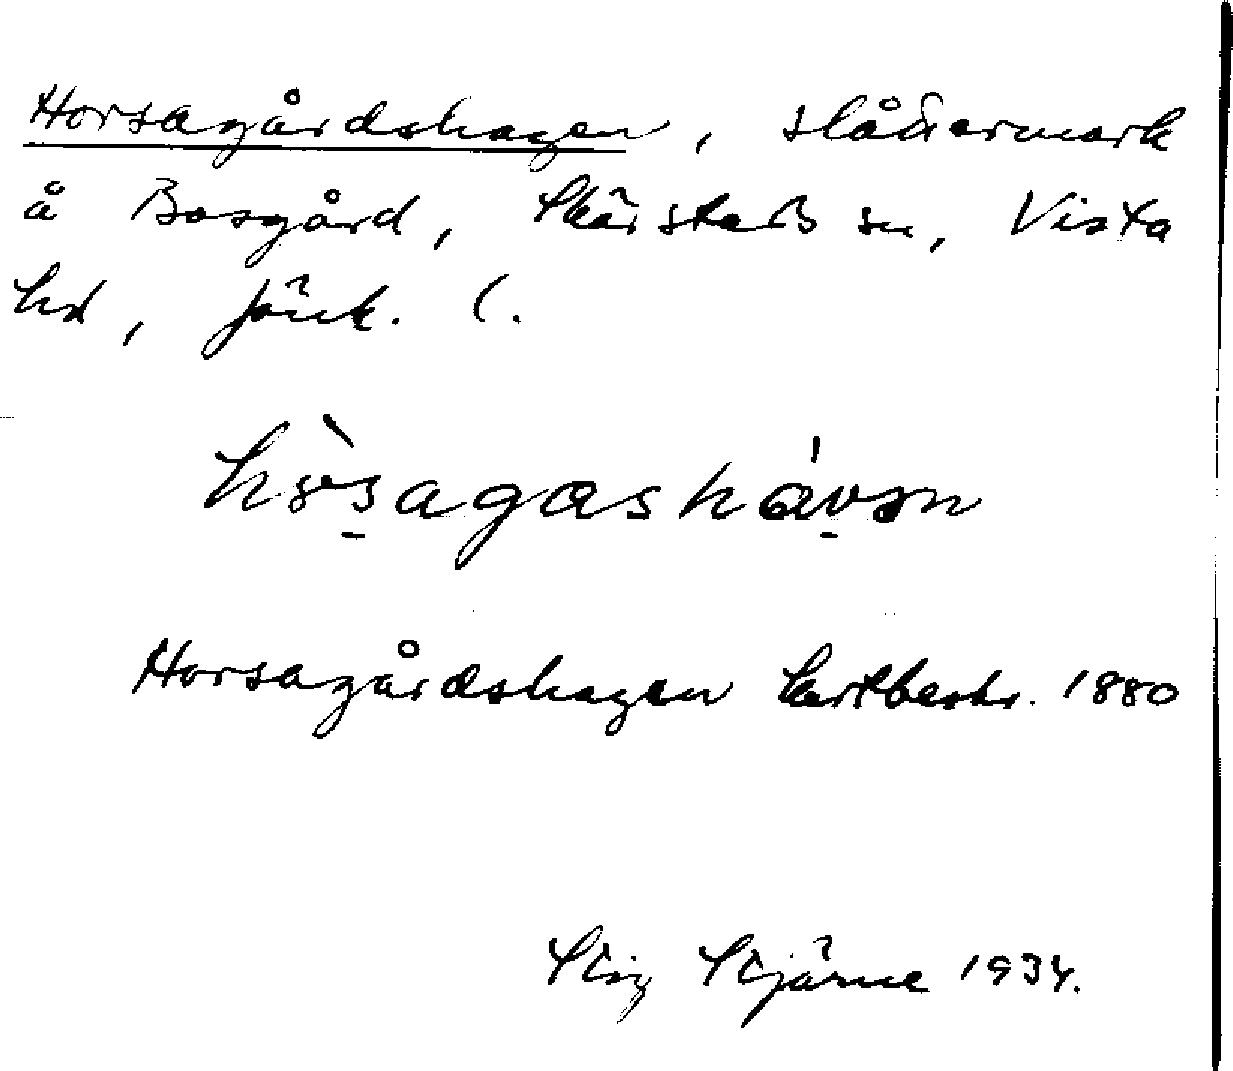 Horsagårdshagen, slåttermark
å Bosgård, Skärstads sn, Vista
hd, Jönk. l.
hòsagashávən
Horsagårdshagen kartbeskr. 1880
Stig Stjärne 1934.